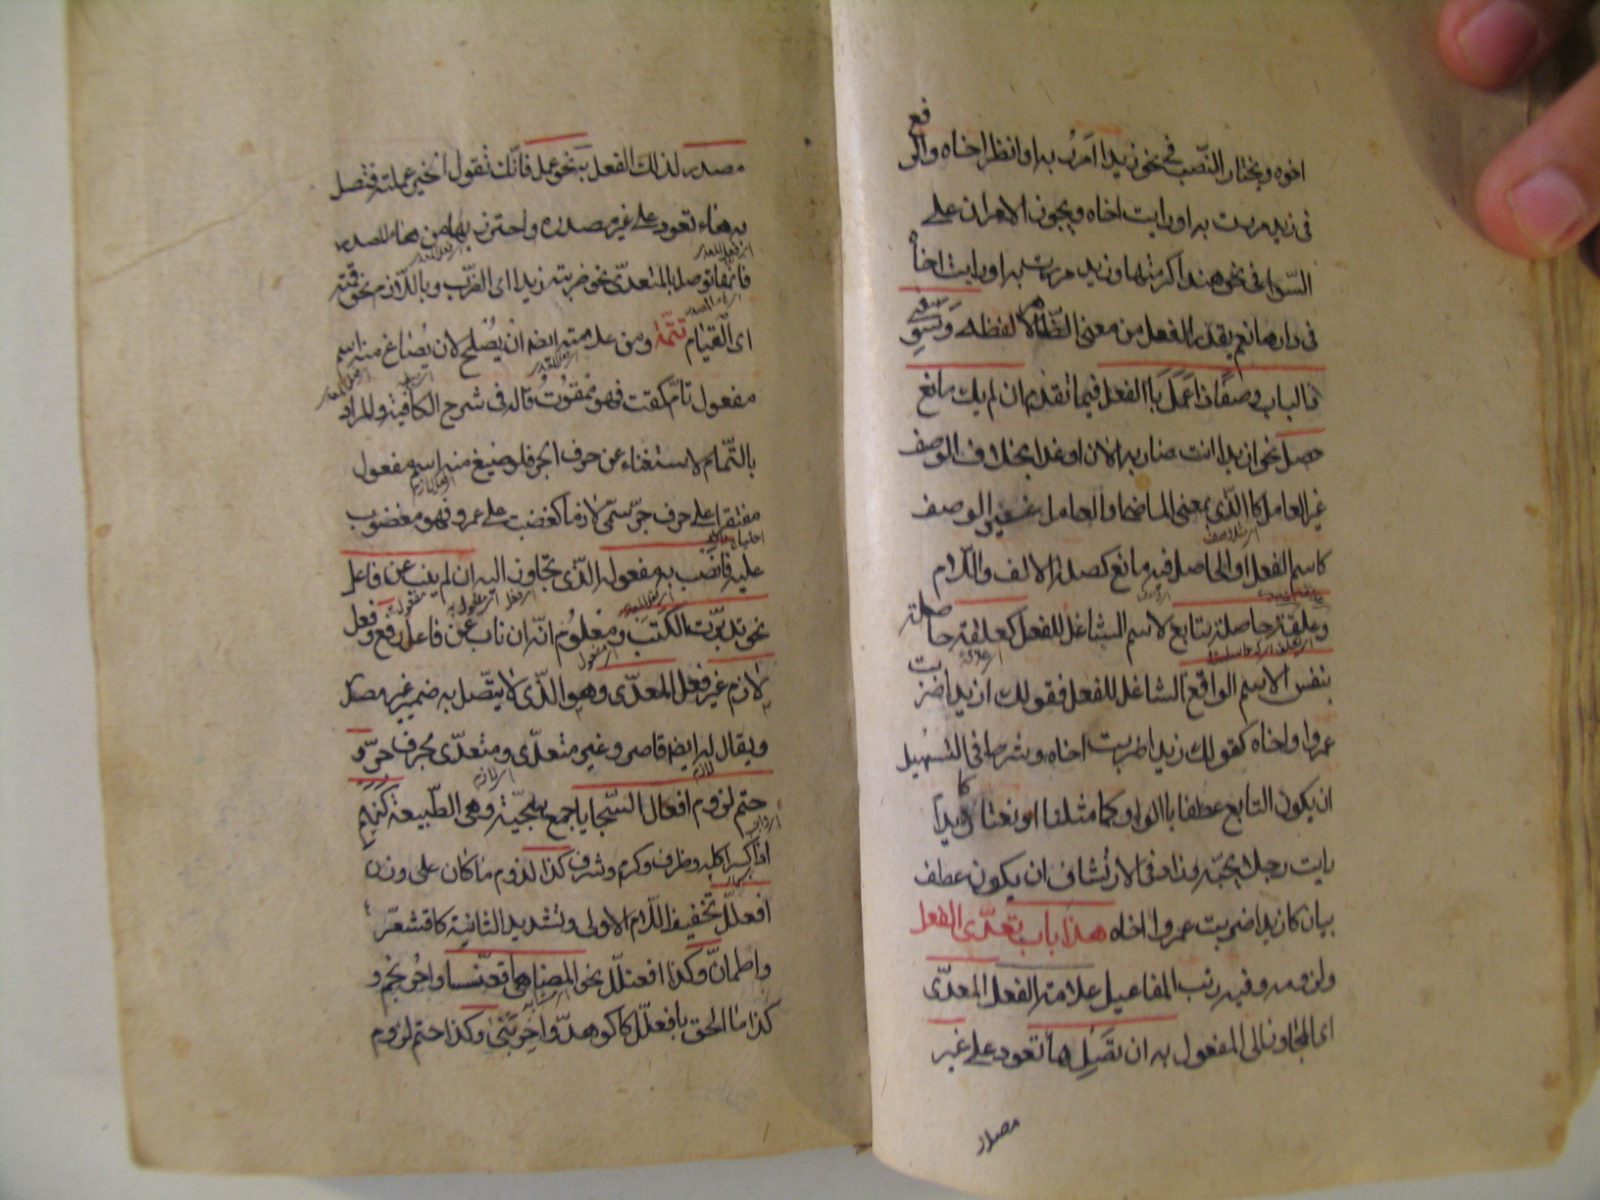 اخوه ويختار النصب فى نحو زيدا امرر به او انظر اخاه والرفع
فى زيد مررت به او رايت اخاه ويجوز الامران على
السوا فى نحو هند اكرمتها وزيد مررت به او رايت اخاه
فى دارها نعم يقدر الفعل من معنى الظاهر لا لفظه وَسَوِّ فى
ذا الباب وصفًا ذا عَمَلْ بالفعل فيما تقدم ان لم يك مانع
حصل نحو ازيدا انت ضاربه الان او غدا بخلاف الوصف
غير العامل كالذى بمعنى الماضى والعامل غير الوصف
كاسم الفعل او الحاصل فيه مانع كصلة الالف واللام
وعلقة حاصلة بتابع لاسم الشاغل للفعل كعلقة حاصلة
بنفس الاسم الواقع الشاغل للفعل فقولك ازيدا ضربت
عمروا واخاه كقولك زيدا ضربت اخاه وشرط فى التسهيل
ان يكون التابع عطفا بالواو كما مثلنا او نعتا كازيدا
رايت رجلا يحبه وزاد فى الارتشاف ان يكون عطف
بيان كازيدا ضربت عمروا اخاه هذا باب تعدى الفعل
ولزومه وفيه رتب المفاعيل علامة الفعل المعدّى
اى المجاوز الى المفعول به ان تصَلِ ها تعود على غير
مصدر
مصدر لذلك الفعل به نحو عمل فانّك تقول الخير عملته فتصل
به هاء تعود على غير مصدره واحترز بها من هاء المصدر
فانها توصل بالمتعدّى نحو ضربته زيدا اى الضرب وباللازم نحو قمته
اى القيام تتمة ومن علامته ايضا ان يُصلح لان يُصاغ منه اسم
مفعول تامّ كمقت فهو ممقوت قاله فى شرح الكافية والمراد
بالتمام الاستغناء عن حرف الجر فلو صيغ منه اسم مفعول
مفتقرا على حرف جرّ سمّى لازما كغضبت على عمرو فهو مغضوب
عليه فانصب به مفعوله الذى تجاوز اليه ان لم ينب عن فاعل
نحو تدبّرت الكتب ومعلوم انه ان ناب عن فاعل رفع وفعل
لازم غير فعل المعدّى وهو الذى لا يتصل به ضمير غير مصدر
ويقال له ايضا قاصر وغير متعدّى ومتعدّى بحرف جرّ و
حتم لزوم افعال السّجايا جمع سجيّة وهى الطّبيعة كنهم
اذا كثر اكله وظرف وكرم وشرف كذا لزوم ما كان على وزن
افعللّ بتخفيف اللام الاولى وتشديد الثانية كاقشعرّ
واطمانّ وكذا افعنلل نحو المضاهى اقعنسسا واحرنجم و
كذا ما الحق بافعللّ كاكوهدّ واحرنبى وكذا حتم لزوم